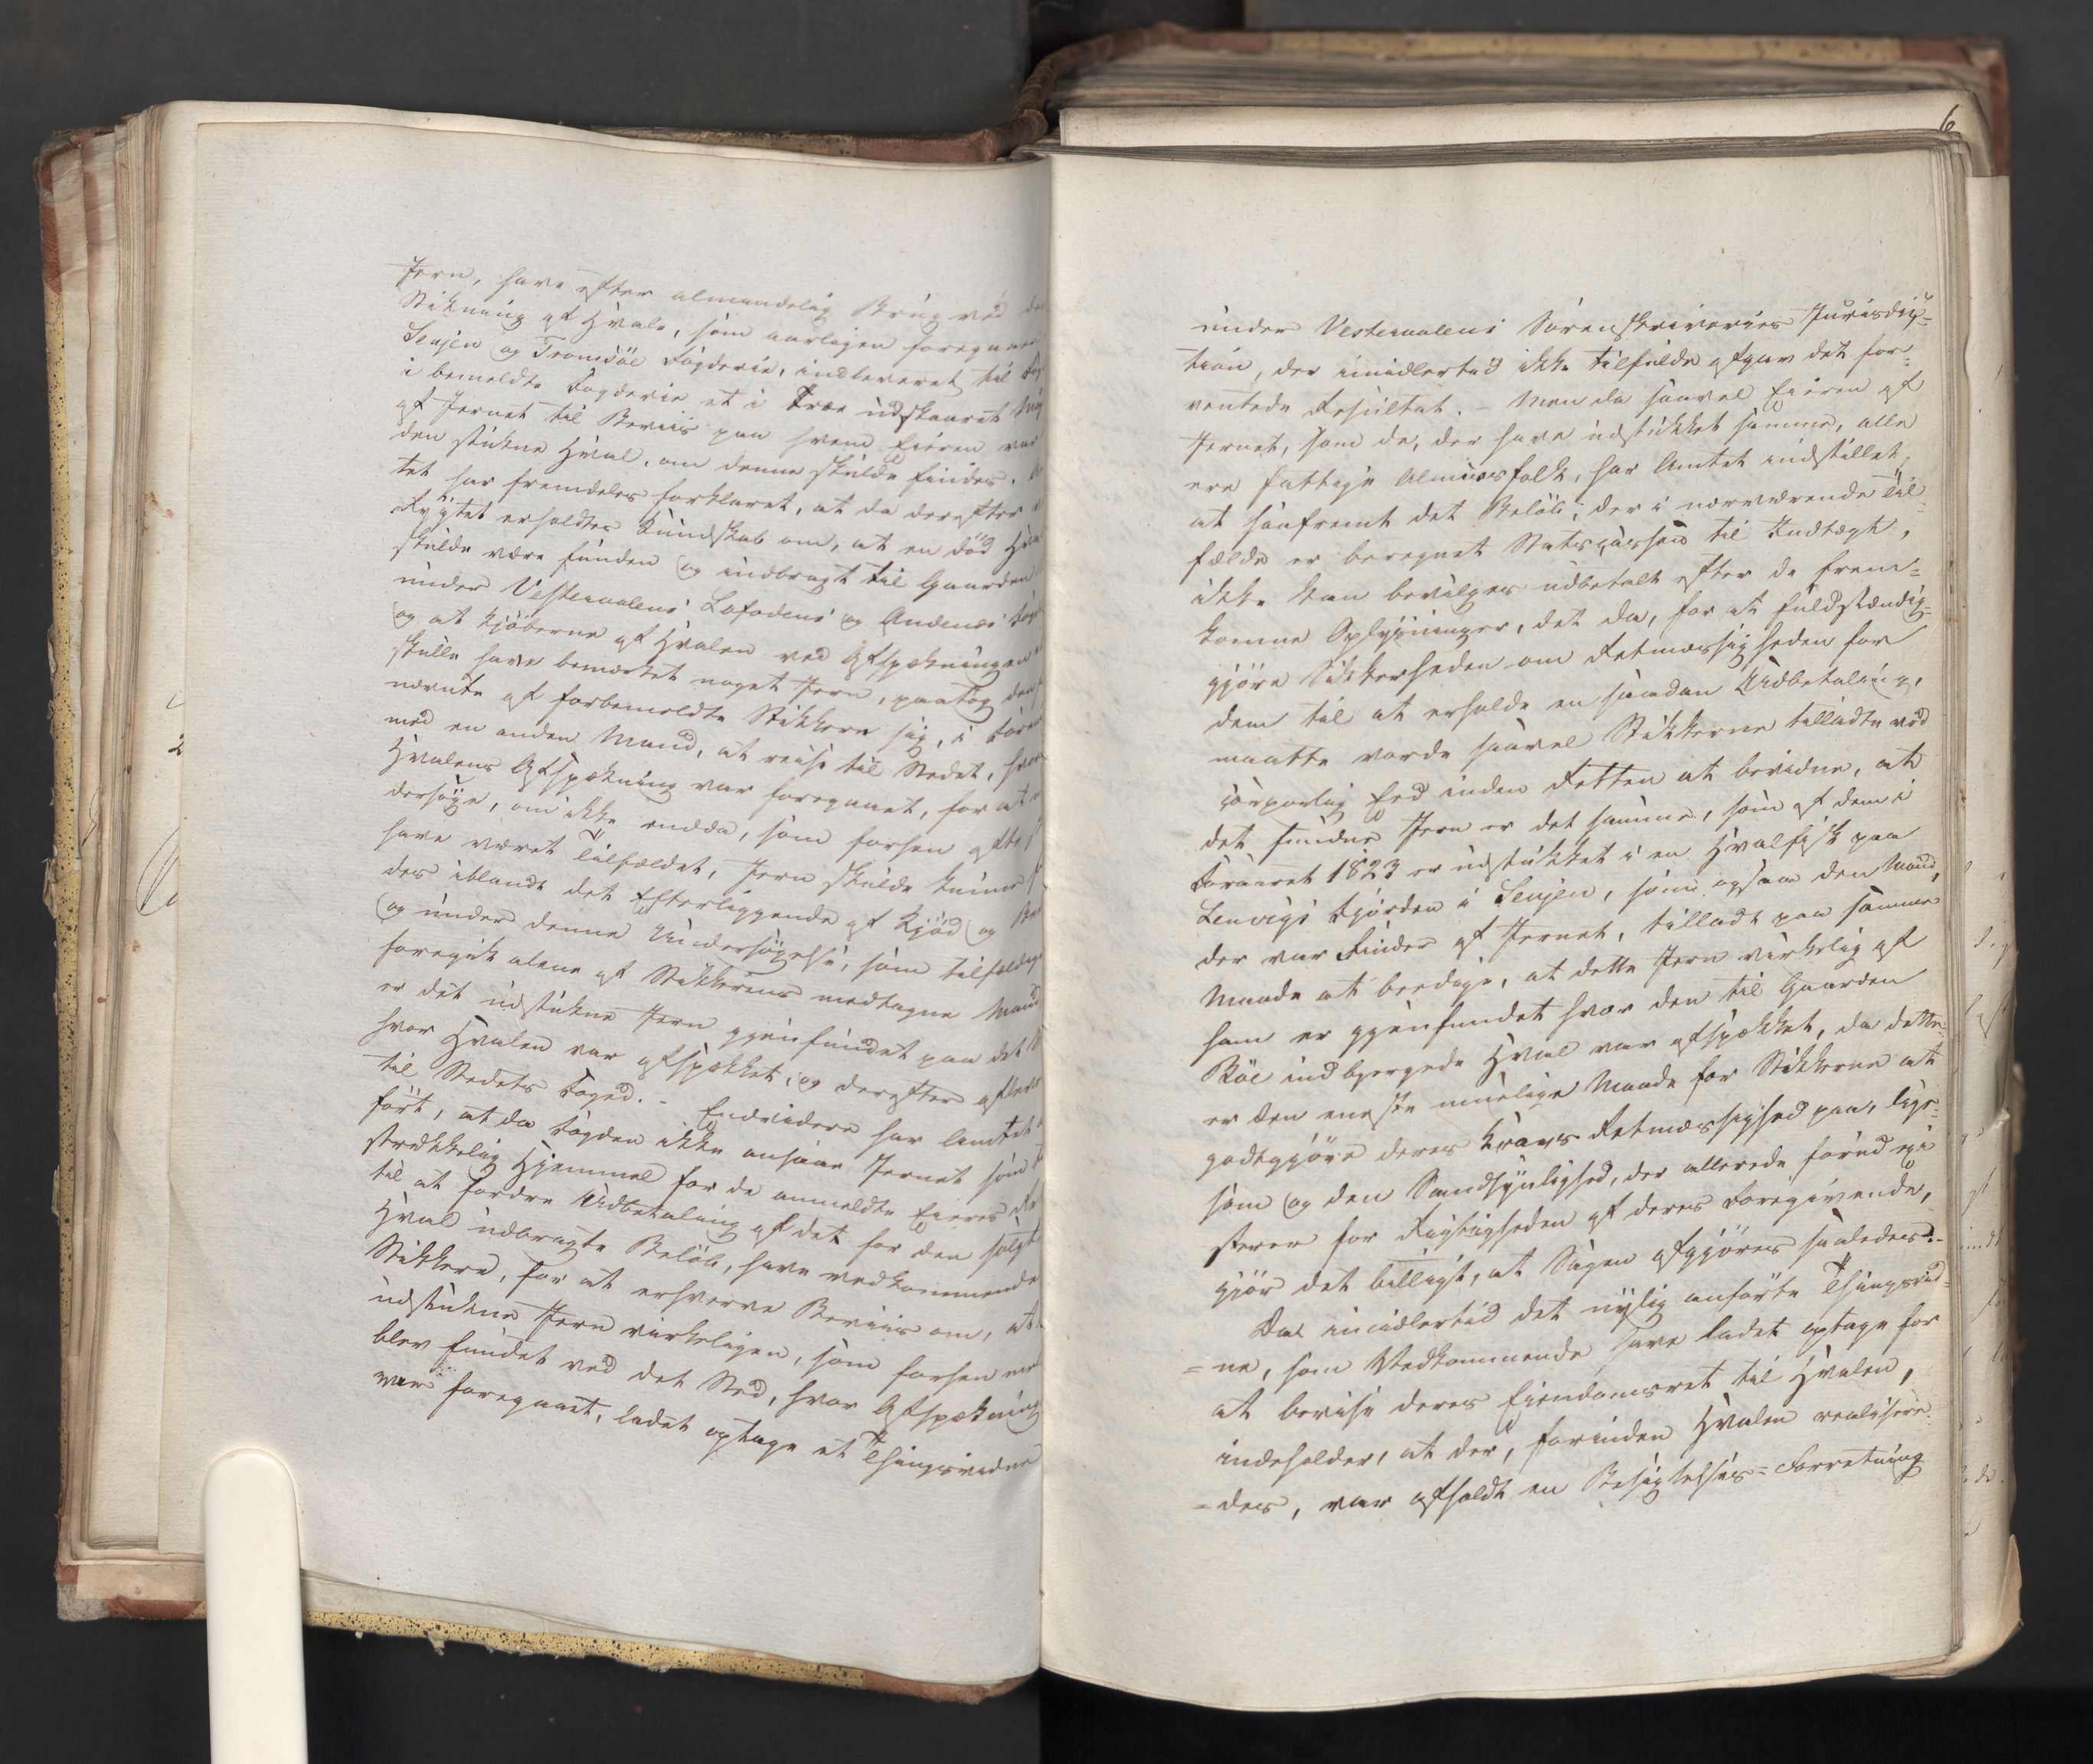 Jern, have efter almindelig Brug ved de
Stikning af Hvale, som aarligen foregaaer
Senjen og Tromsöe Fogderie, indleveret til Fog
i bemeldte Fogderie et i Træe udskaaret
af Jernet til Beviis paa hvem Eieren var
den stukne Hval, om denne skulde findes.
tet har fremdeles forklaret, at da derefter
Rygtet erholdtes Kundskab om, at en död Hval
skulde være funden og indbragt til Gaarden
under Vesteraalens Lofodens og Andenæs Fog
og at Kjöberne af Hvalen ved Afspækningen
skulle have bemærket noget Jern, paatog den
nævnte af forbemeldte Stikkere sig, i Foren
med en anden Mand, at reise til Stedet, hvor
Hvalens Afspækning var foregaaet, for at
dersöge, om ikke endda, som forhen ofte
have været Tilfældet, Jern skulde kunne
des iblandt det Efterliggende af Kjöd og Been
og under denne Undersögelse, som tilfældig
foregik alene af Stikkerens medtagne Mand
er det udstukne Jern gjenfundet paa det
hvor Hvalen var afspækket, og derefter afleve
til Stedets Foged. - Endvidere har Amtet
fört, at da Fogden ikke ansaae Jernet som
strækkelig Hjemmel for de anmeldte Eieres
til at fordre Udbetaling af det for den solgte
Hval udbragte Belöb, have vedkommende
Stikkere, for at erhverve Beviis om, at
udstukne Jern virkeligen, som forhen
blev fundet ved det Sted, hvor Afspækning
var foregaaet, ladet optage et Thingsvidne
6
under Vesteraalens Sorenskriveries Jurisdic-
tion, der imidlertid ikke tilfulde afgav det for-
ventede Resultat. - Men da saavel Eieren af
Jernet, som de, der have udstukket samme, alle
ere fattige Almuesfolk, har Amtet indstillet,
at saafremt det Belöb, der i nærværende Til-
fælde er beregnet Statscassen til Indtægt,
ikke kan bevilges udbetalt efter de frem-
komne Oplysninger, det da, for at fuldstændig-
gjöre Sikkerheden om Retmæssigheden for
dem til at erholde en saadan Udbetaling,
maatte vorde saavel Stikkerne tilladte ved
corporlig Eed inden Retten at bevidne, at
det fundne Jern er det samme, som af dem i
Foraaret 1823 er udstukket i en Hvalfisk paa
Lenvigs Fjorden i Senjen, som ogsaa den Mand,
der var Finder af Jernet, tilladt paa samme
Maade at beedige, at dette Jern virkelig af
ham er gjenfundet hvor den til Gaarden
Böe indbjergede Hval var afspækket, da dette
er den eneste muelige Maade for Stikkerne at
godtgjöre deres Kravs Retmæssighed paa, lige-
som og den Sandsynlighed, der allerede forud exi
sterer for Rigtigheden af deres Foregivende,
gjör det billigt, at Sagen afgjöres saaledes. -
Da imidlertid det nylig anförte Thingsvid-
=ne, som Vedkommende have ladet optage for
at bevise deres Eiendomsret til Hvalen,
indeholder, at der, forinden Hvalen realisere-
=des, var afholdt en Besigtelses=Forretning